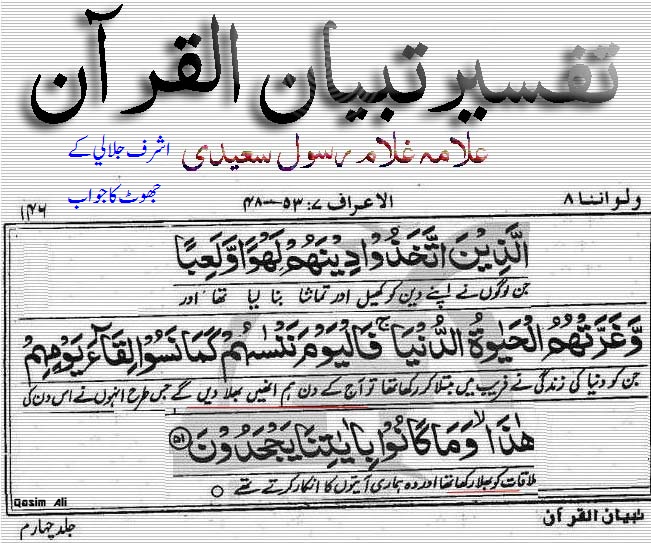 تفسیر تبیان القرآن
علامہ غلام رسول سعیدی اشرف جلالی کے
جھوٹ کا جواب
ولو اننا ۸ الاعراف ۷: ۵۳—۴۸ ۱۴۶
الَّذِیْنَ اتَّخَذُوْا دِیْنَهُمْ لَهْوًا وَّلَعِبًا
جن لوگوں نے اپنے دین کو کھیل اور تماشا بنا لیا تھا اور
وَّغَرَّتْهُمُ الْحَیٰوةُ الدُّنْیَا ۚ فَالْیَوْمَ نَنْسٰىهُمْ كَمَا نَسُوْا لِقَآءَ یَوْمِهِمْ
جن کو دنیا کی زندگی نے فریب میں مبتلا کر رکھا تھا تو آج کے دن ہم انھیں بھلا دیں گے جس طرح انہوں نے اس دن کی
هٰذَا ۙ وَمَا كَانُوْا بِاٰیٰتِنَا یَجْحَدُوْنَ ﴿۵۱﴾
ملاقات کو بھلا رکھا تھا اور وہ ہماری آیتوں کا انکار کرتے تھے ○
Qasim Ali
تبیان القرآن جلد چہارم